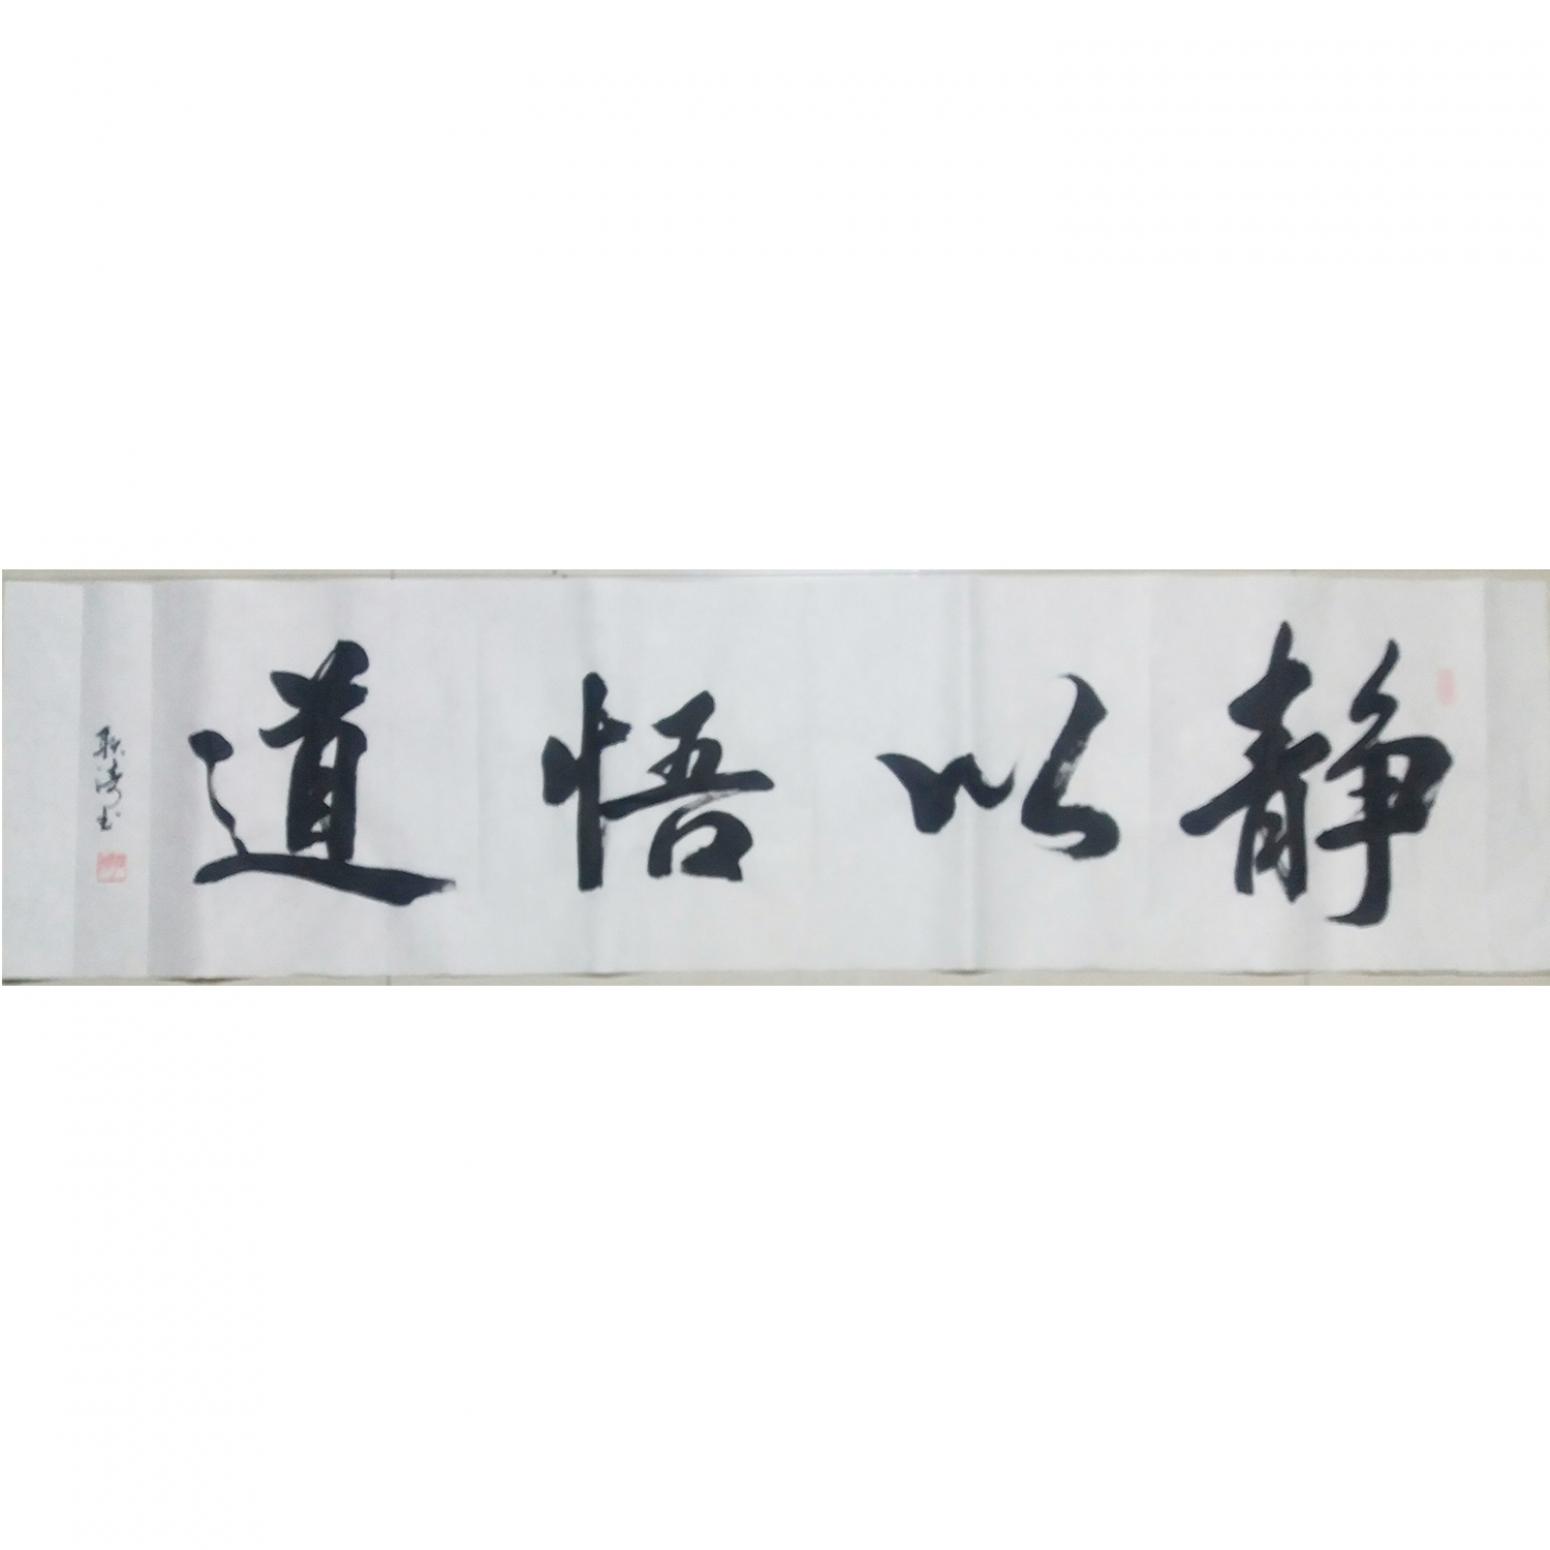 静以悟道
耿涛书